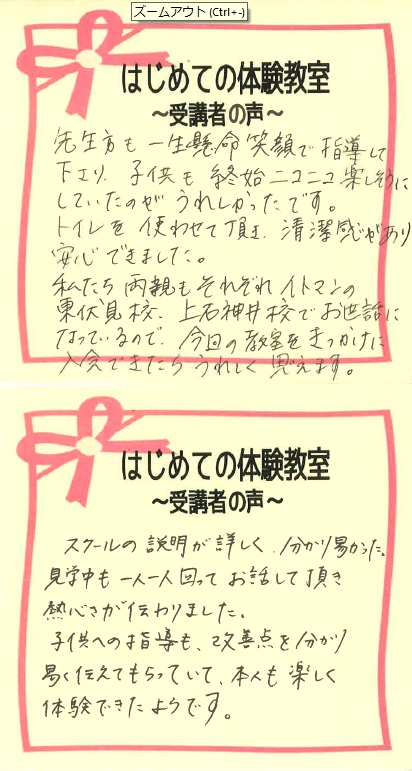 ズームアウト (Ctrl+-)
はじめての体験教室
～受講者の声～
先生方も一生懸命笑顔で指導して
下さり、子供も終始ニコニコ楽しそうに
していたのがうれしかったです。
トイレを使わせて頂き、清潔感があり
安心できました。
私たち両親もそれぞれイトマンの
東伏見校、上石神井校でお世話に
なっているので、今回の教室をきっかけに
入会できたらうれしく思えます。
はじめての体験教室
～受講者の声～
スクールの説明が詳しく、分かり易かった。
見学中も一人一人回ってお話して頂き
熱心さが伝わりました。
子供への指導も、改善点を分かり
易く伝えてもらっていて、本人も楽しく
体験できたようです。